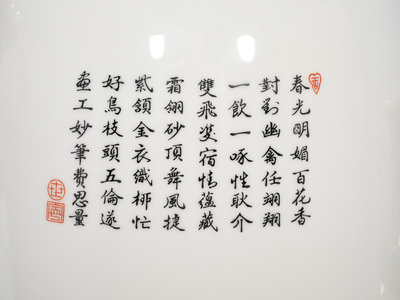 春光明媚百花香
對對幽禽任翊翔
一飲一啄性耿介
雙飛雙宿情蘊藏
霜翎砂頂舞風捷
紫頷金衣織梛忙
好鳥枝頭五倫遂
畫工妙筆費思量